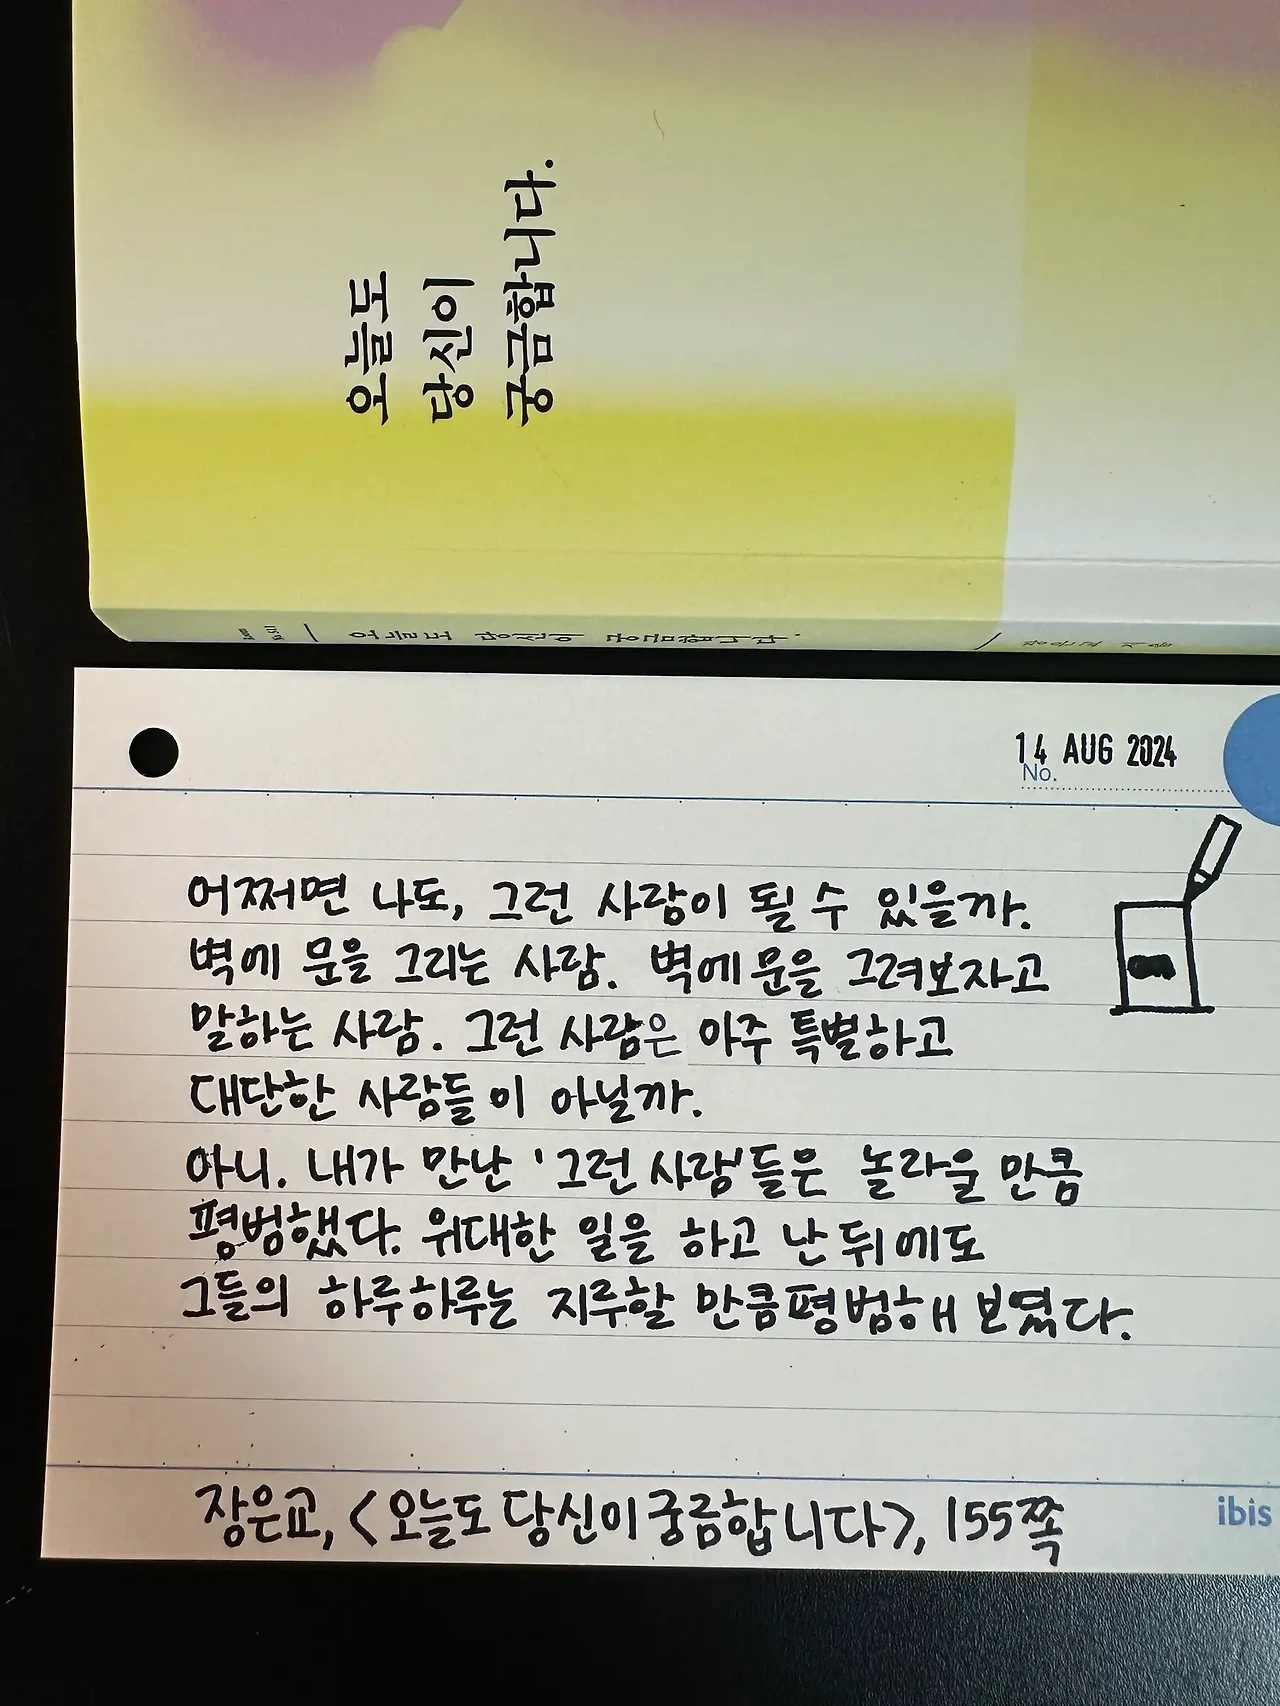 오늘도
당신이
궁금합니다.
오늘도 당신이 궁금합니다.
14 AUG 2024
No.
어쩌면 나도, 그런 사람이 될 수 있을까.
벽에 문을 그리는 사람. 벽에 문을 그려보자고
말하는 사람. 그런 사람은 아주 특별하고
대단한 사람들이 아닐까.
아니. 내가 만난 '그런 사람'들은 놀라울 만큼
평범했다. 위대한 일을 하고 난 뒤에도
그들의 하루하루는 지루할 만큼 평범해 보였다.
장은교, <오늘도 당신이 궁금합니다>, 155쪽
ibis